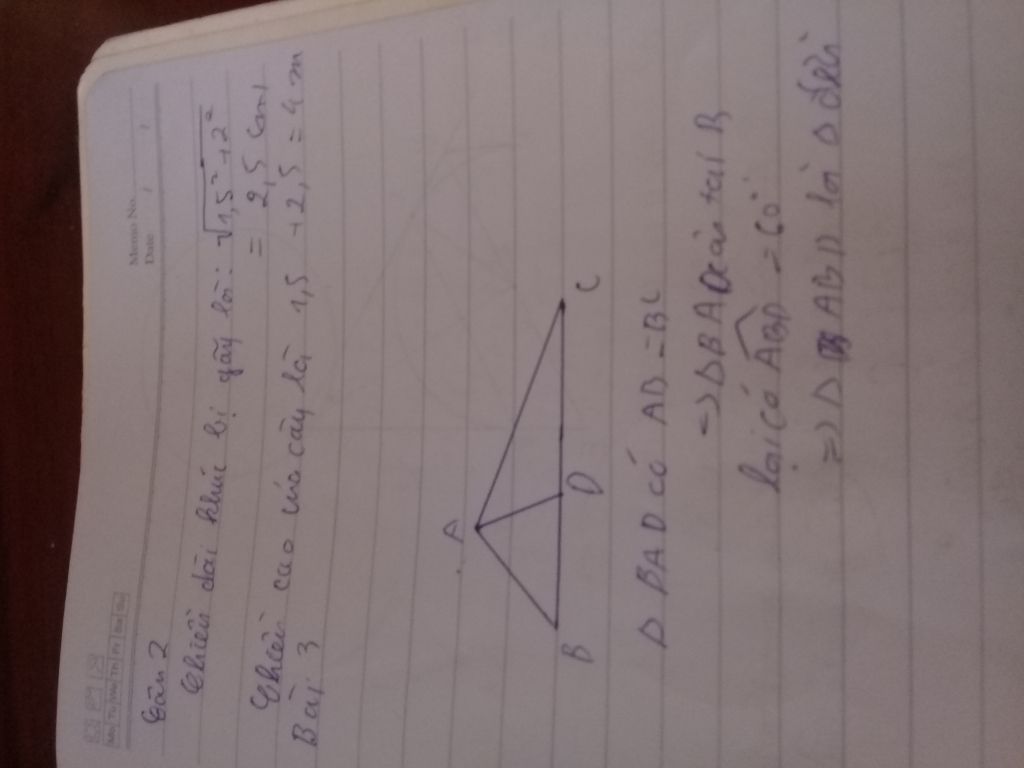 Memo No.
Date / /
Mo Tu We Th Fr Sa Su
Câu 2
Chiều dài khúc bị gãy là: √1,5²+2²
= 2,5 (cm)
Chiều cao của cây là 1,5 + 2,5 = 4 m
Bài: 3
A
B
D
C
Δ BAD có AB = BC
=> Δ BAD cân tại B
lại có ABD = 60°
=> Δ ABD là Δ đều